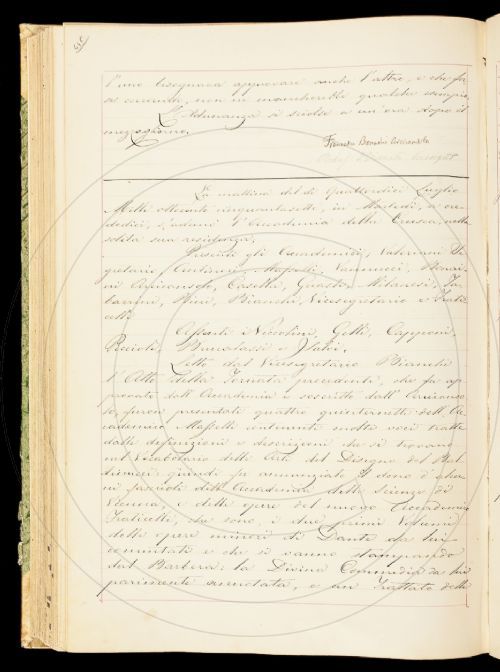 l'uno bisognava approvare anche l'altro, e che fa
non ne mancherebbe qualche esempio.
L'Adunanza si sciolse a un'ora dopo il
mezzogiorno.
Francesco Bonaini Arciconsolo
La mattina del dì Quattordici Luglio
Mille ottocento cinquantasette, in Martedì, a ore
dodici, s'adunò l'Accademia della Crusca nella
solita sua residenza.
Presenti gli Accademici, Valeriani Se-
gretario, Masselli, Vannucci, Bonai-
ni Arciconsolo, Casella, Guasti, Milanesi, Ta-
barrini, Bini, Bianchi, Vicesegretario e Frati-
celli
Assenti i Niccolini, Gelli, Capponi,
Brunatassi e
Letto dal Vicesegretario Bianchi
l'Atto della Tornata precedente, che fu ap-
provato dall'Accademia e soscritto dall'Arciconso-
lo, furon presentati quattro quinternetti dell'Ac-
cademico Masselli contenenti molte voci tratte
dalle definizioni e descrizioni che si trovano
nel Vocabolario delle Arti del Disegno del Bal-
dinucci; quindi fu annunziato il dono d'alcu-
ni fascicoli dell'Accademia delle Scienze di
Vienna, e delle opere del nuovo Accademico
Fraticelli, che sono, i due primi Volumi
delle opere minori di Dante da lui
comentate e che si vanno stampando
dal Barbèra: la Divina Commedia da lui
parimente annotata, e un Trattato delle